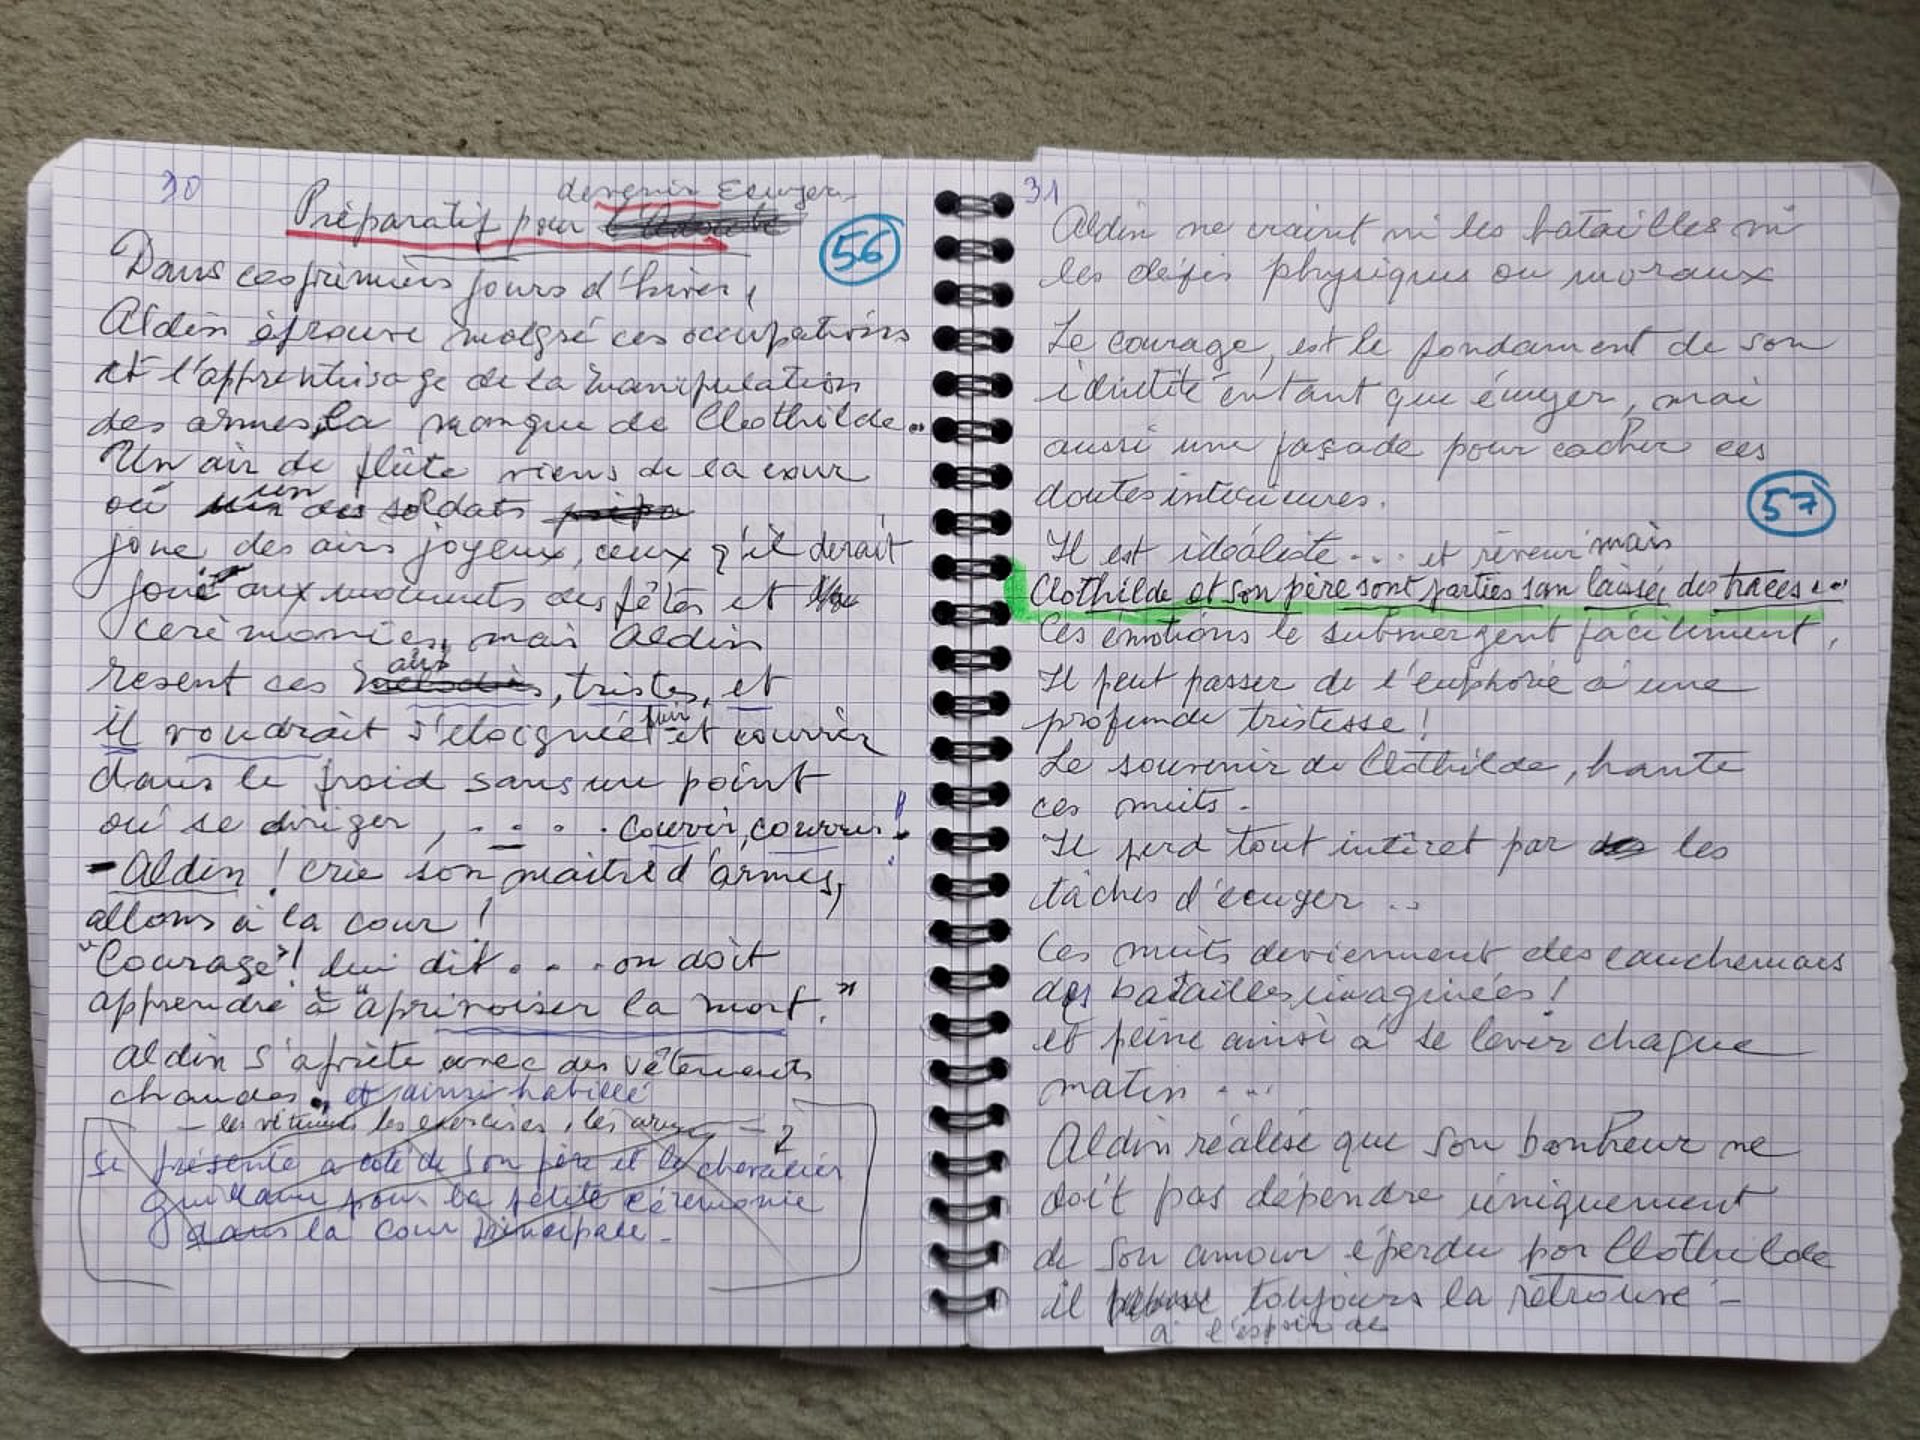 30
devenir Ecuyer
Préparatif pour
56
Dans ces prémiers jours d'hiver,
Aldin éprouve malgré ces occupations
et l'apprentisage de la manipulation
des armes, la manque de Clothilde..
Un air de flûte viens de la cour
où un des soldats
joue des airs joyeux, ceux q'il devait
joué aux moments des fêtes et
cerémonies, mais Aldin
resent ces airs, tristes, et
il voudrait s'eloignée fuir et courrir
dans le froid sans un point
où se diriger, . . . . Courir, courrir!
- Aldin! crie son maître d'armes,
allons à la cour!
"Courage"! lui dit . . . on doit
apprendre à "aprivoiser la mort."
Aldin s'aprète avec des vêtements
chaudes. et ainsi habillé
- les vêtements les exercices, les armes - 2
se présente a coté de son père et le chevalier
Guillaume pour la petite céremonie
dans la cour principale -
31
Aldin ne craint ni les batailles ni
les défis physiques ou moraux
Le courage, est le fondament de son
identité en tant que écuyer, mai
aussi une façade pour cacher ces
doutes interieures.
57
Il est idéaliste . . . et rêveur mais
Clothilde et son père sont parties san laissée des traces ...
Ces émotions le submergent facilement,
Il peut passer de l'euphorie à une
profunde tristesse!
Le souvenir de Clothilde, hante
ces nuits -
Il perd tout intéret par les
tâches d'écuyer ..
Ces nuits deviennent des cauchemars
des batailles imaginées!
et peine ainsi a se lever chaque
matin ....
Aldin réalise que son bonheur ne
doit pas dépendre uniquement
de son amour éperdu por Clothilde
il toujours la retrouve -
a l'espoir de